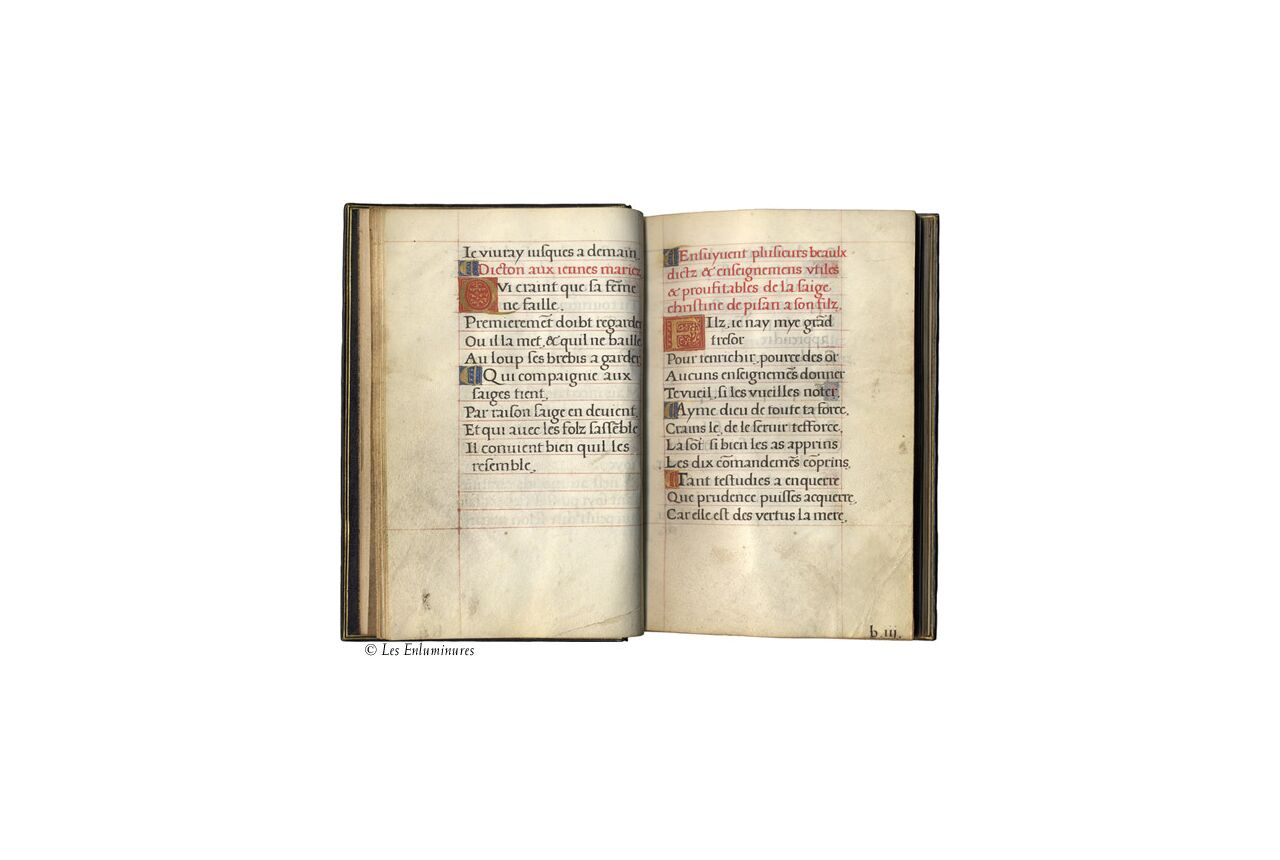 Ie viuray iusques a demain.
Dicton aux ieunes mariez
QVi craint que sa fēme
ne faille.
Premieremēt doibt regarder
Ou il la met, & quil ne baille
Au loup ses brebis a garder
Qui compaignie aux
saiges tient.
Par raison saige en deuient.
Et qui auec les folz sassēble
Il conuient bien quil les
resemble.
Ensuyuent plusieurs beaulx
dictz & enseignemens vtiles
& proufitables de la saige
christine de pisan a son filz.
FIlz, ie nay mye grād
tresor
Pour tenrichir, pource des or
Aucuns enseignemēs donner
Te vueil, si les vueilles noter.
Ayme dieu de toute ta force,
Crains le, de le seruir tefforce,
La sōt si bien les as apprins
Les dix cōmandemēs cōprins.
Tant testudies a enquerre
Que prudence puisses acquerre,
Car elle est des vertus la mere,
b.iii.
© Les Enluminures